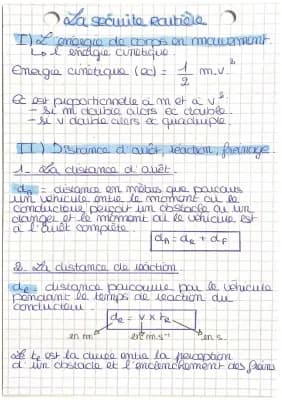 La sécurité routière
I) L'énergie de corps en mouvement.
↳ l'énergie cinétique.
Energie cinétique (ec) = 1/2 m.v²
Ec est proportionnelle à m et à v².
- si m double alors ec double.
- si v double alors ec quadruple.
II) Distance d'arrêt, réaction, freinage
1. La distance d'arrêt.
dA = distance en mètres que parcours
un véhicule entre le moment où le
conducteur perçoit un obstacle ou un
danger et le moment où le véhicule est
à l'arrêt complète.
dA = dR + dF
2. La distance de réaction.
dR : distance parcourue par le véhicule
pendant le temps de réaction du
conducteur.
dR = v x tR
en m en m.s⁻¹ en s.
Le tR est la durée entre la perception
d'un obstacle et l'enclenchement des freins